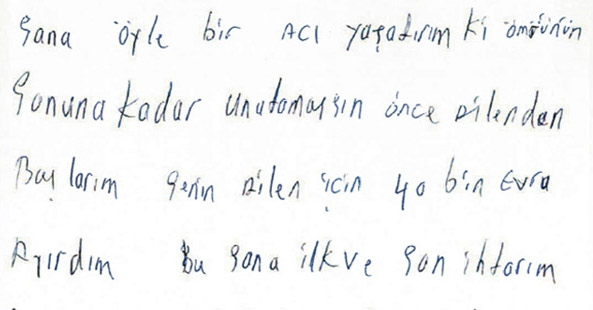 Sana öyle bir ACI yaşatırım ki ömrünün
Sonuna kadar unutamassın önce Ailenden
Başlarım senin Ailen için 40 bin Evra
Ayırdım Bu sana ilk ve son ihtarım